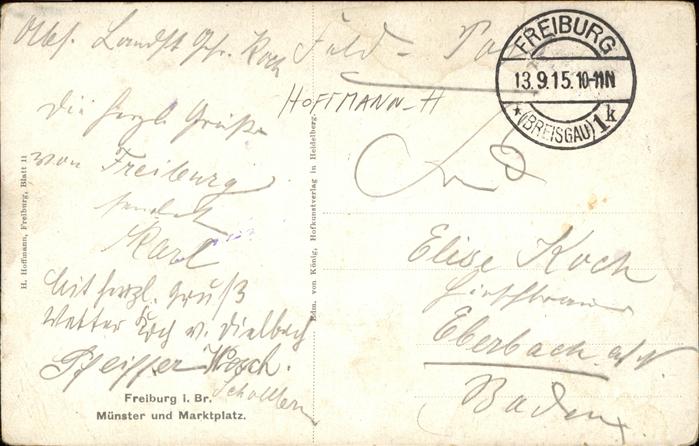 Abs. Landst. Gfr. Koch
Feld - Po
FREIBURG
13.9.15.10-11N
* (BREISGAU) 1k
HOFFMANN-H
Die herzl. Grüße
von Freiburg
sendet
Karl
Mit herzl. Gruß
Vetter Koch v. Dielbach
Pfeiffer Kosch.
H. Hoffmann, Freiburg, Blatt 11
Edm. von König, Hofkunstverlag in Heidelberg.
Freiburg i. Br.
Münster und Marktplatz.
Elise Koch
Eberbach a/N.
Baden